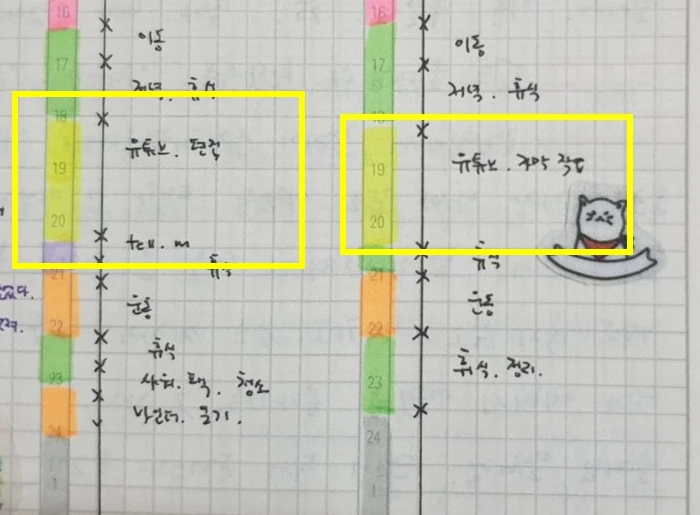 16
이동
17
저녁. 휴식
18
유튜브. 편집
19
20
tell. m
휴식
21
운동
22
휴식
23
샤워. 팩. 청소
바인더. 일기.
24
1
16
이동
17
저녁. 휴식
18
유튜브. 자막 작업
19
20
휴식
21
운동
22
휴식. 정리.
23
24
1